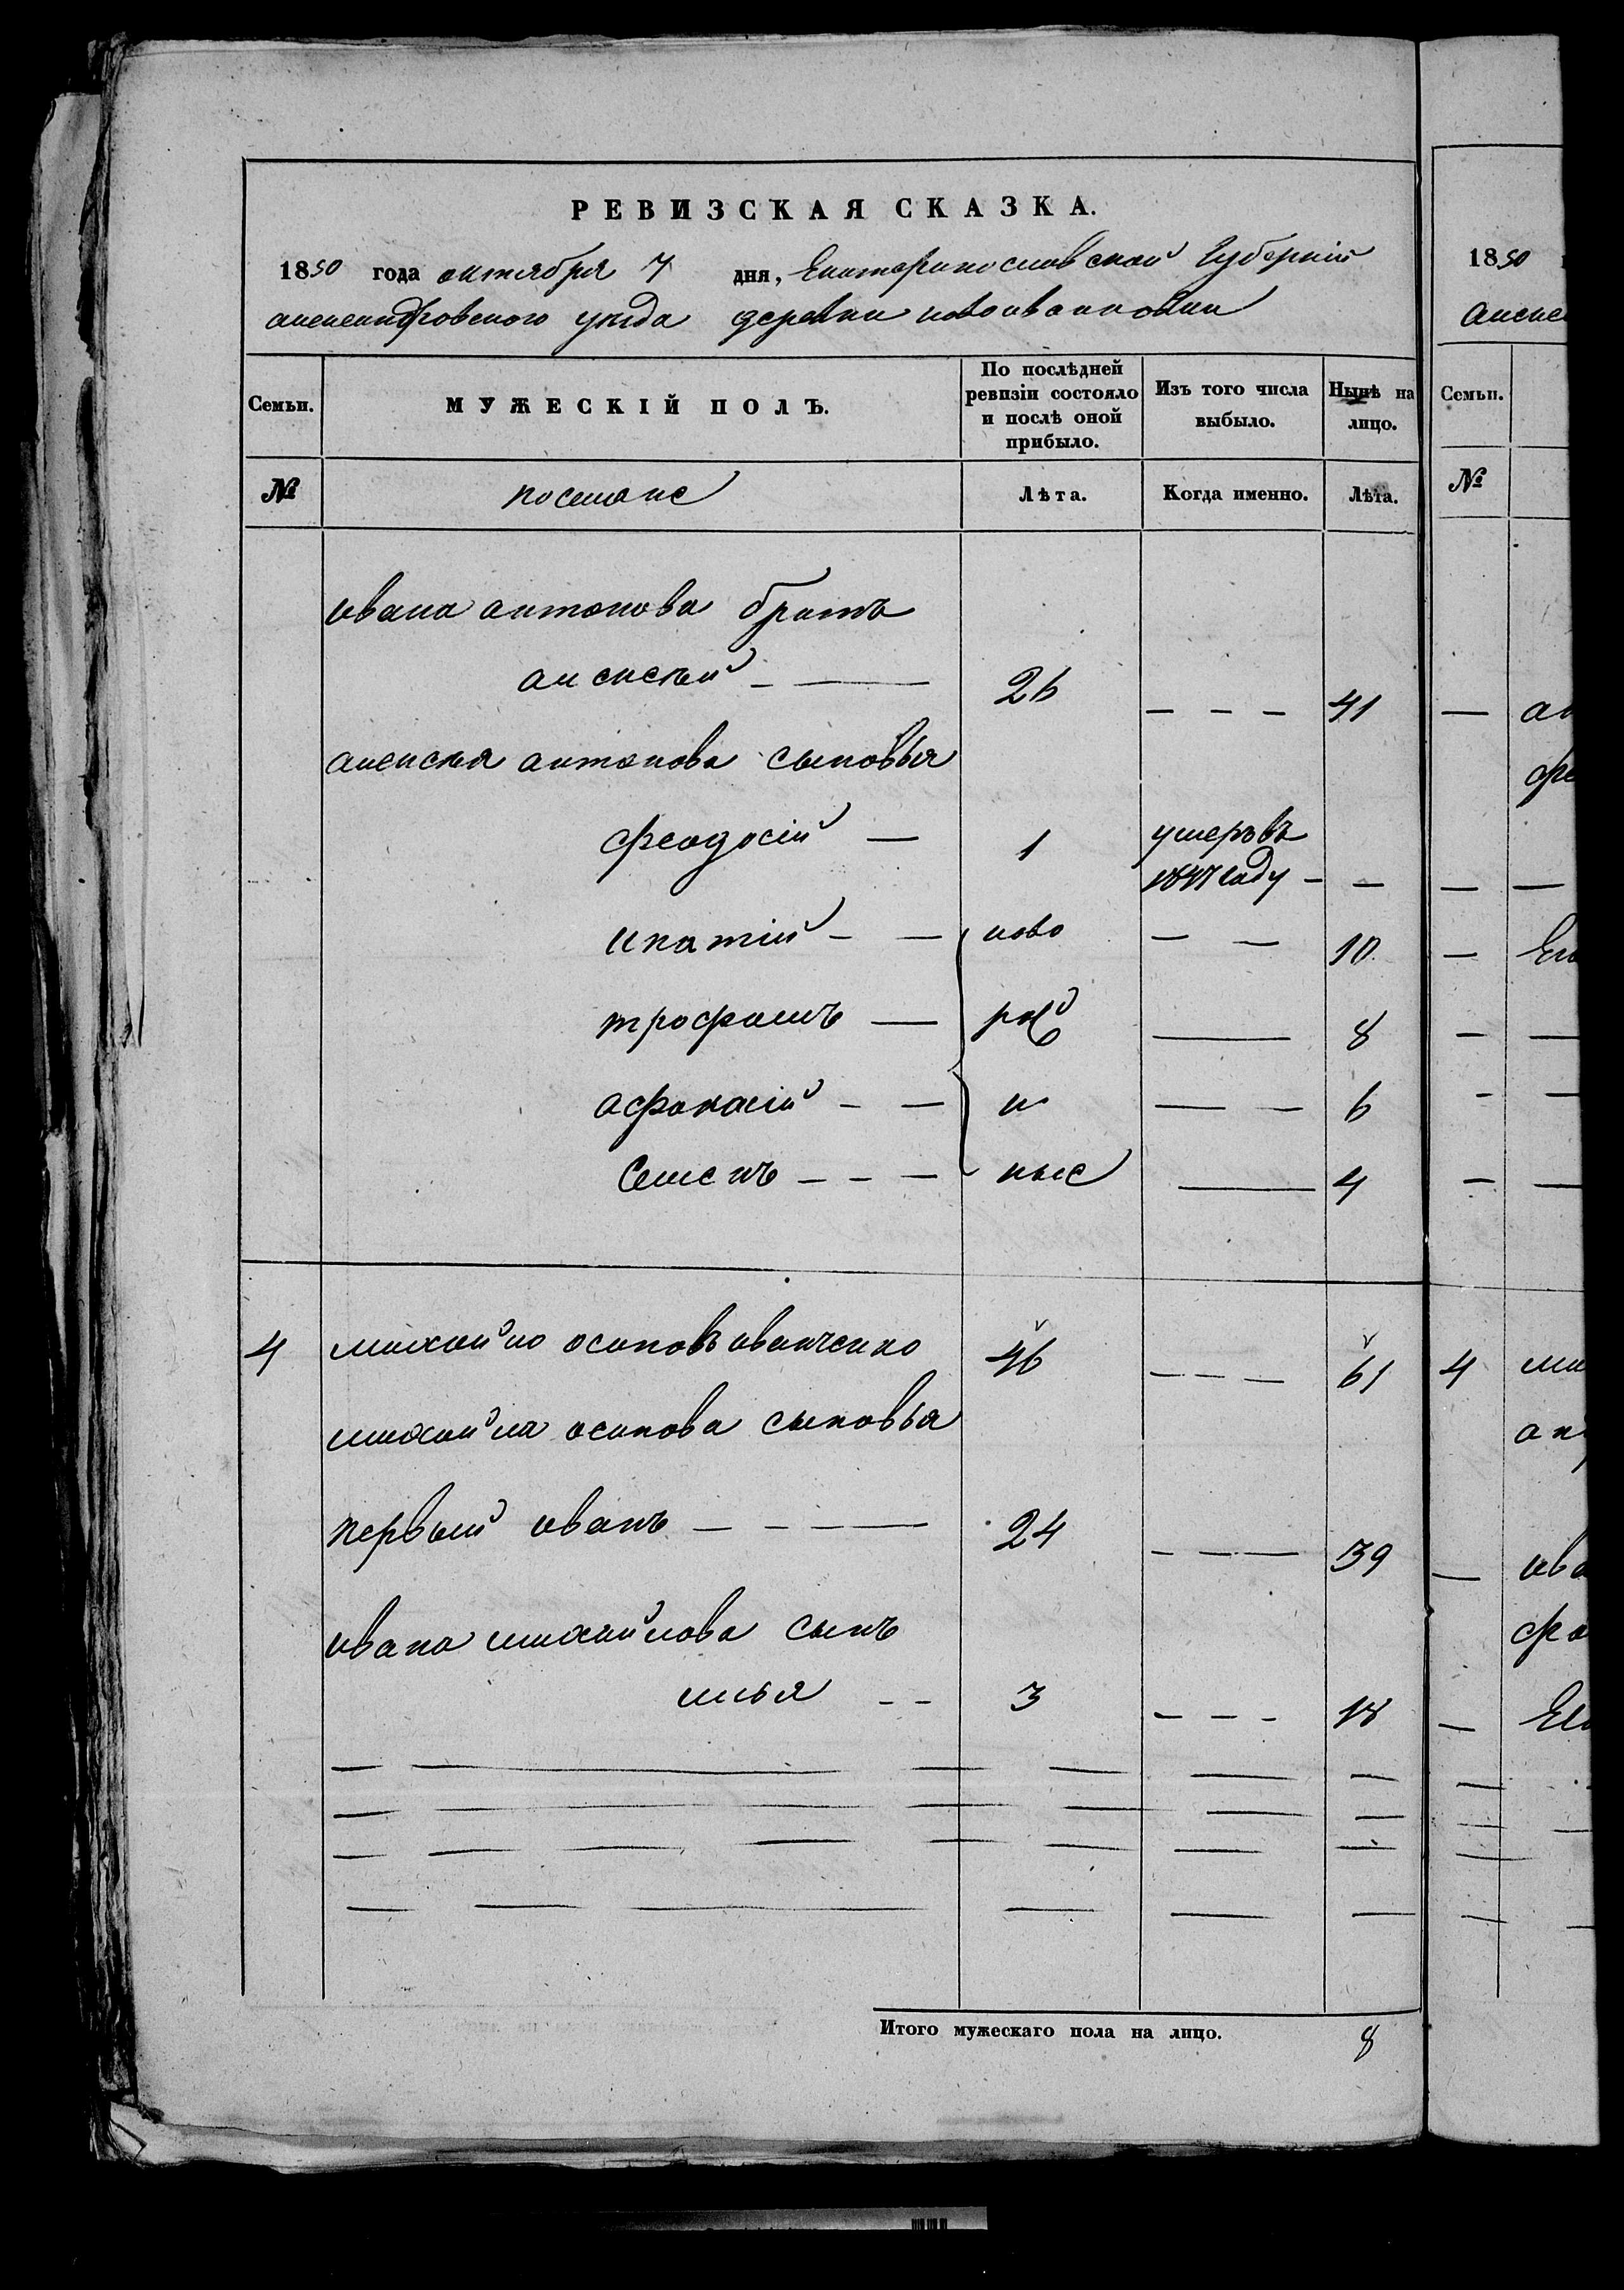 РЕВИЗСКАЯ СКАЗКА.
1850 года октября 7 дня, Екатеринославской Губерніи
александровского уезда деревни новоивановки
Семьи.
МУЖЕСКІЙ ПОЛЪ.
По послѣдней ревизіи состояло и послѣ оной прибыло.
Изъ того числа выбыло.
Нынѣ на лицо.
№
поселяне
Лѣта.
Когда именно.
Лѣта.
ивана антонова братъ
алексѣй 26 41
алексѣя антонова сыновья
феодосій 1 умеръ въ
1847 году
ипатій ново 10
трофимъ рож 8
афонасій и 6
Семенъ ные 4
4 михайло осиповъ иванченко 46 61
михайла осипова сыновья
первый иванъ 24 39
ивана михайлова сынъ
илья 3 18
Итого мужескаго пола на лицо. 8
1850
Семьи.
№
4